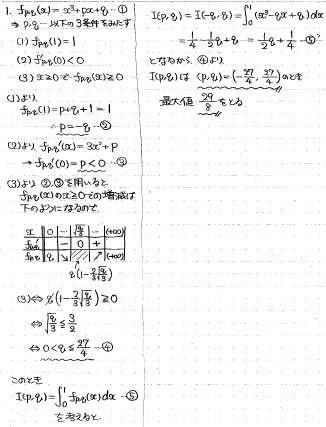 1. f_{p,q}(x) = x³+px+q …①
⇒ p,q… 以下の3条件をみたす
(1) f_{p,q}(1)=1
(2) f'_{p,q}(0)<0
(3) x≧0で f_{p,q}(x)≧0
(1)より、
f_{p,q}(1)=p+q+1=1
∴ p=-q …②
(2)より f_{p,q}'(x)=3x²+p
→ f_{p,q}'(0)=p<0 …③
(3)より ②,③を用いると
f_{p,q}(x)のx≧0での増減は
下のようになるので
x | 0 | … | √(q/3) | … | (+∞)
f'_{p,q} | | − | 0 | + |
f_{p,q} | q | ↘ | | ↗ | (+∞)
q(1-\frac{2}{3}√(q/3))
(3)⇔ q(1-\frac{2}{3}√(q/3))≧0
⇔ √(q/3)≦\frac{3}{2}
⇔ 0<q≦\frac{27}{4} …④
このとき
I(p,q)=∫₀¹ f_{p,q}(x)dx …⑤
を考えると、
I(p,q)=I(-q,q)=∫₀¹(x³-qx+q)dx
=\frac{1}{4}-\frac{1}{2}q+q=\frac{1}{2}q+\frac{1}{4} …⑤'
となるから、④より
I(p,q)は (p,q)=(-\frac{27}{4},\frac{27}{4})のとき
最大値 \frac{29}{8} をとる